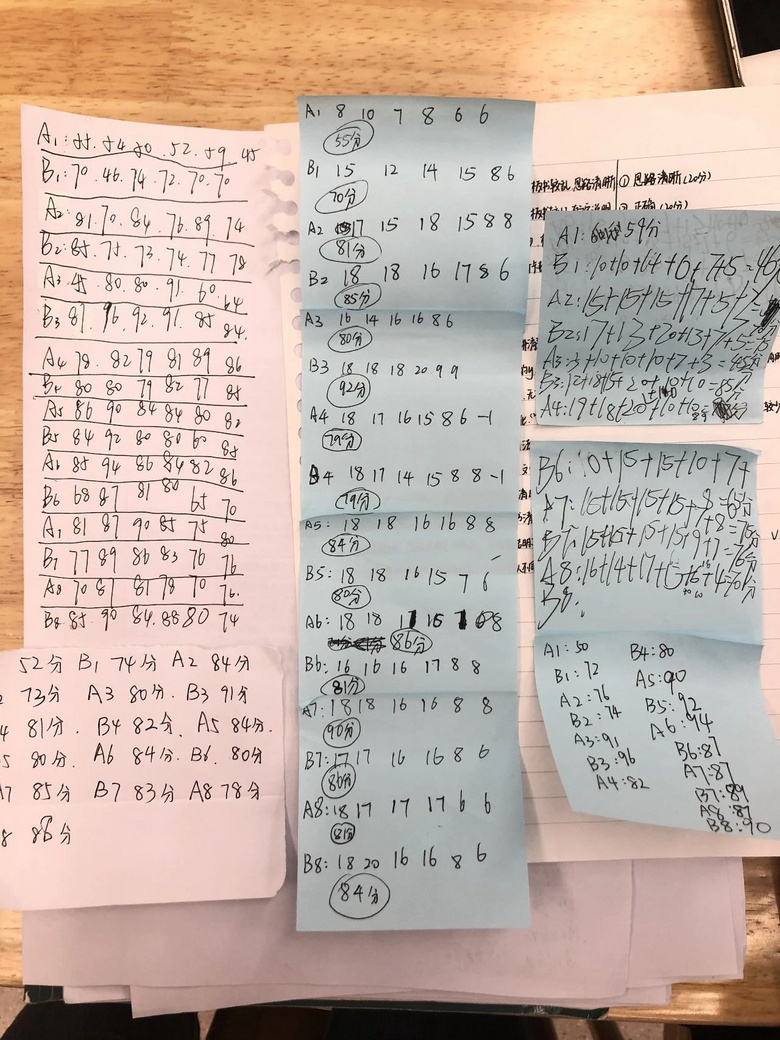 A1: 55. 54 50. 52. 59. 45
B1: 70. 46. 74. 72. 70. 70
A2: 81. 70. 84. 76. 89. 74
B2: 85. 75. 73. 74. 77 78
A3 45. 80. 80. 91. 60. 64
B3 87. 96. 92. 91. 85 84.
A4 78. 82 79 81 89 86
B4 80 80 79 82 77 85
A5 86 90 84 84 80 82
B5 84 92 80 80 60 85
A6 85 94 86 84 82 86
B6 68 87 81 80 65 70
A7 81 87 90 85 75 80
B7 77 89 86 83 76 76
A8 70 87 81 78 70 76.
B8 85. 90 84. 88 80 74
52分 B1 74分 A2 84分
2 73分 A3 80分. B3 91分
4 81分. B4 82分、A5 84分.
5 80分. A6 84分. B6. 80分
A7 85分 B7 83分 A8 78分
8 86分
A1 8 10 7 8 6 6
55分
B1 15 12 14 15 8 6
70分
A2 17 15 18 15 8 8
81分
B2 18 18 16 17 8 6
85分
A3 16 14 16 16 8 6
80分
B3 18 18 18 20 9 9
92分
A4 18 17 16 15 8 6 -1
79分
B4 18 17 14 15 8 8 -1
79分
A5: 18 18 16 16 8 8
84分
B5: 18 18 16 15 7 6
80分
A6: 18 18 17 15 8
86分
B6: 16 16 16 17 8 8
81分
A7: 18 18 16 16 8 8
90分
B7: 17 17 16 16 8 6
86分
A8: 18 17 17 17 6 6
81分
B8: 18 20 16 16 8 6
84分
思路清晰 ① 思路清晰(20分)
② 正确(20分)
A1: 59分
B1: 10+10+14+0+7+5=46分
A2: 15+15+15+17+5+
B2: 17+13+20+13+7+5=75
A3: 3+10+10+10+7+3=45分
B3: 12+18+15+20+10+10=85分
A4: 19+18+20+10+10
B6: 10+15+15+10+7+
A7: 15+15+15+15+7+8=75分
B7: 15+15+15+15+9+7=76分
A8: 16+14+17+15+6+4=70分
B8:
A1: 50
B1: 72
A2: 76
B2: 74
A3: 91
B3: 96
A4: 82
B4: 80
A5: 90
B5: 92
A6: 94
B6: 87
A7: 87
B7: 89
A8: 87
B8: 90